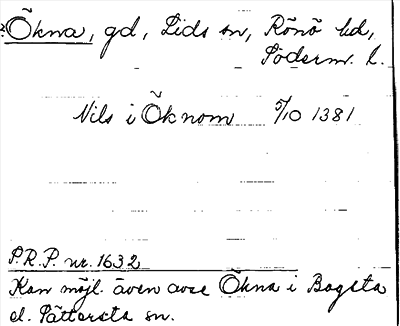 ?Ökna, gd, Lids sn, Rönö hd,
Söderm. l.
Nils i Öknom 5/10 1381
P.R.P. nr. 1632
Kan möjl. även avse Ökna i Bogsta
el. Sättersta sn.